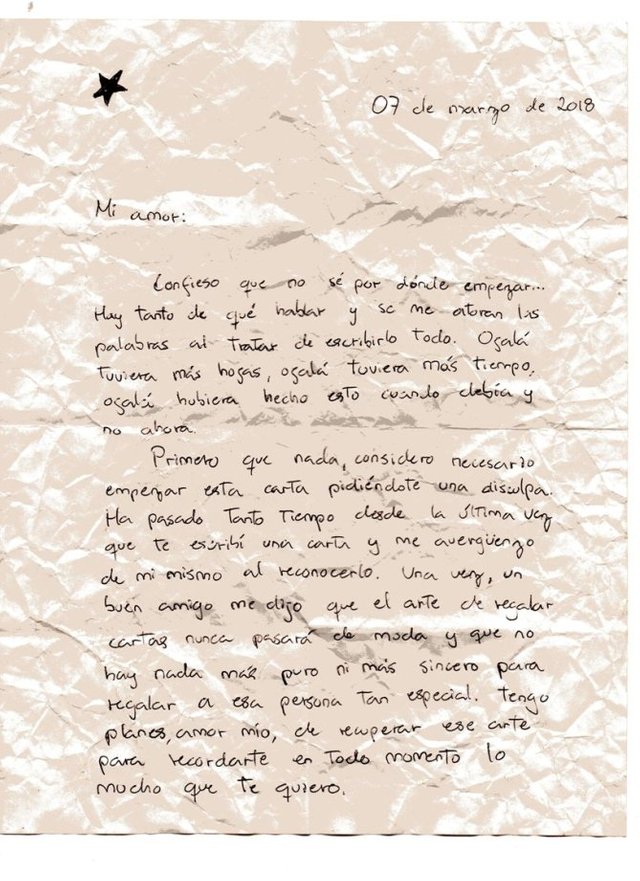 07 de marzo de 2018
Mi amor:
Confieso que no sé por dónde empezar...
Hay tanto de qué hablar y se me atoran las
palabras al tratar de escribirlo todo. Ojalá
tuviera más hojas, ojalá tuviera más tiempo,
ojalá hubiera hecho esto cuando debía y
no ahora.
Primero que nada, considero necesario
empezar esta carta pidiéndote una disculpa.
Ha pasado tanto tiempo desde la última vez
que te escribí una carta y me avergüenzo
de mi mismo al reconocerlo. Una vez, un
buen amigo me dijo que el arte de regalar
cartas nunca pasará de moda y que no
hay nada más puro ni más sincero para
regalar a esa persona tan especial. Tengo
planes, amor mío, de recuperar ese arte
para recordarte en todo momento lo
mucho que te quiero.